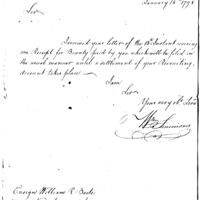 January 16th 1798
Sir
I received your letter of the 13th Instant covering
one Receipt for Bounty paid by you which will be filed in
the usual manner until a settlement of your Recruiting
account takes place.
I am
Sir
Your very Ob. Serv.
Wm Simmons
Ensign William R. Boote